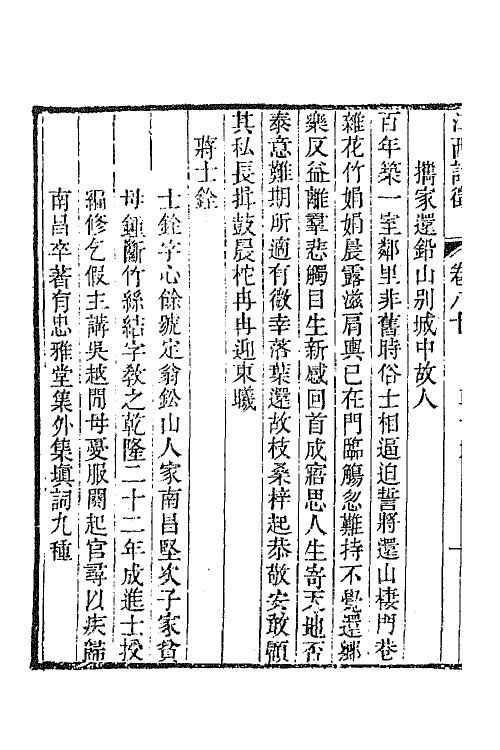 江西詩徵 卷八十
攜家還鉛山別城中故人
百年築一室鄰里非舊時俗士相逼迫誓將還山棲門巷
雜花竹娟娟晨露滋肩輿已在門臨觴忽難持不覺還鄉
樂反益離羣悲觸目生新感回首成寤思人生寄天地否
泰意難期所適有微幸落葉還故枝桑梓起恭敬安敢顧
其私長揖鼓晨柁冉冉迎東曦
蔣士銓
士銓字心餘號定翁鉛山人家南昌堅次子家貧
母鍾斷竹絲結字教之乾隆二十二年成進士授
編修乞假主講吳越閒母憂服闋起官尋以疾歸
南昌卒著有忠雅堂集外集塡詞九種